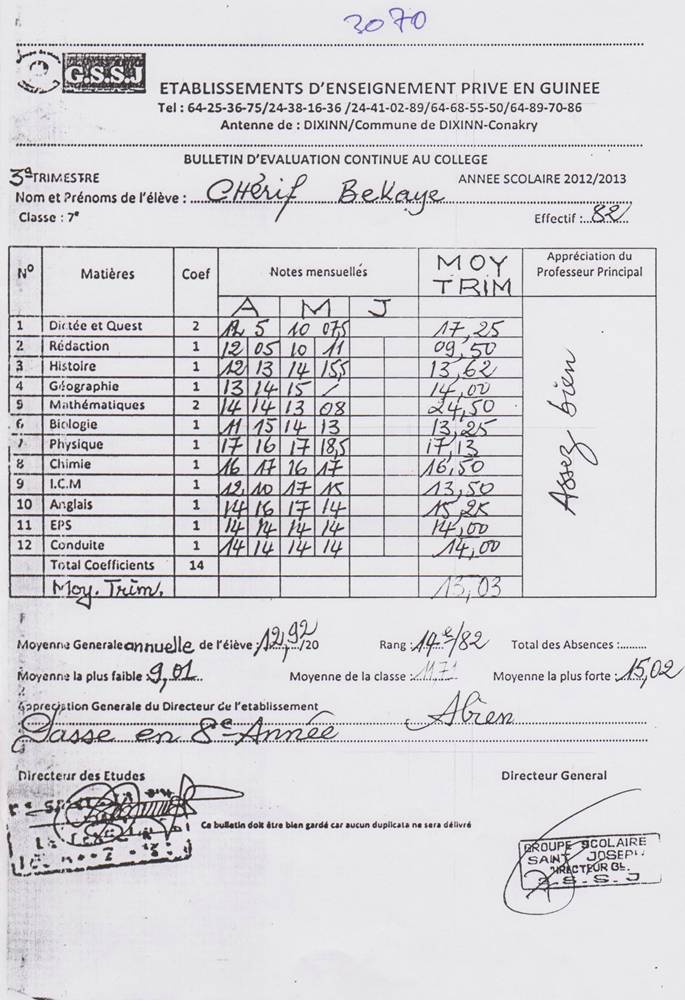 3070
G.S.S.J
ETABLISSEMENTS D'ENSEIGNEMENT PRIVE EN GUINEE
Tel : 64-25-36-75/24-38-16-36 /24-41-02-89/64-68-55-50/64-89-70-86
Antenne de : DIXINN/Commune de DIXINN-Conakry
BULLETIN D'EVALUATION CONTINUE AU COLLEGE
3e TRIMESTRE ANNEE SCOLAIRE 2012/2013
Nom et Prénoms de l'élève : CHérif Bekaye
Classe : 7e Effectif : 82
N° Matières Coef Notes mensuelles MOY TRIM Appréciation du Professeur Principal
A M J
1 Dictée et Quest 2 12 5 10 07,5 17,25
2 Rédaction 1 12 05 10 11 09,50
3 Histoire 1 12 13 14 15,5 13,62
4 Géographie 1 13 14 15 / 14,00
5 Mathématiques 2 14 14 13 08 24,50
6 Biologie 1 11 15 14 13 13,25
7 Physique 1 17 16 17 18,5 17,13
8 Chimie 1 16 17 16 17 16,50
9 I.C.M 1 12 10 17 15 13,50
10 Anglais 1 14 16 17 14 15,25
11 EPS 1 14 14 14 14 14,00
12 Conduite 1 14 14 14 14 14,00
Total Coefficients 14
Moy. Trim. 13,03
Assez bien
Moyenne Generale annuelle de l'élève : 12,92/20 Rang : 14e/82 Total des Absences :.........
Moyenne la plus faible : 9,01 Moyenne de la classe : 11,71 Moyenne la plus forte : 15,02
Appreciation Generale du Directeur de l'etablissement
Passe en 8e Année ABien
Directeur des Etudes Directeur General
Ce bulletin doit être bien gardé car aucun duplicata ne sera délivré
GROUPE SCOLAIRE
SAINT JOSEPH
DIRECTEUR GL.
G.S.S.J